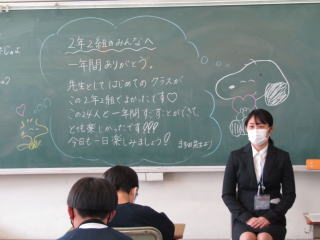 2年2組のみんなへ
一年間ありがとう。
先生としてはじめてのクラスが
この2年2組でよかったです♡
この24人と一年間すごすことができて、
とても楽しかったです!!!
今日も一日楽しみましょう!!